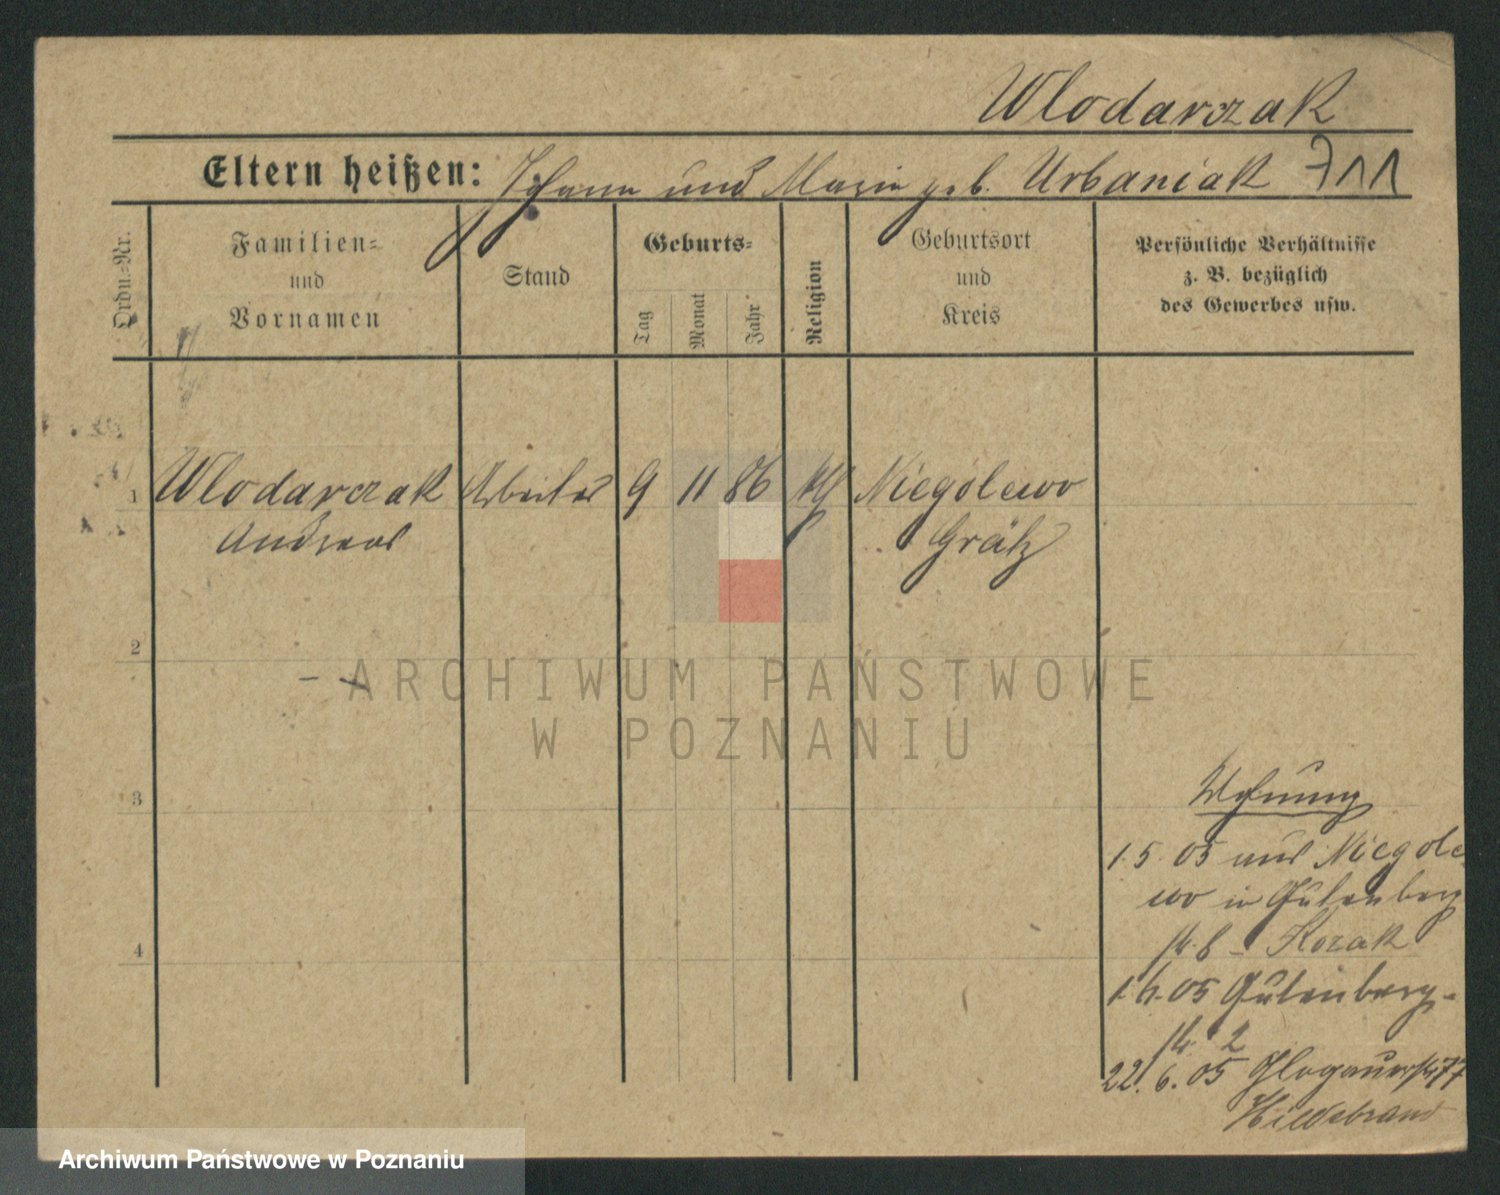 Wlodarczak
Eltern heißen: Johann und Marie geb. Urbaniak 711
Ordn.-Nr.
Familien-
und
Vornamen
Stand
Geburts-
Tag
Monat
Jahr
Religion
Geburtsort
und
Kreis
Persönliche Verhältnisse
z. B. bezüglich
des Gewerbes usw.
1 Wlodarczak Arbeiter 9 11 86 kth Niegolewo
Andreas Grätz
2
ARCHIWUM PAŃSTWOWE
W POZNANIU
3
Wohnung
1.5.05 aus Niegole
wo in Gutenberg
str. 8 - Kozak
4
1.6.05 Gutenberg-
str. 2
22.6.05 Glogauerstr 77
Hildebrand
Archiwum Państwowe w Poznaniu